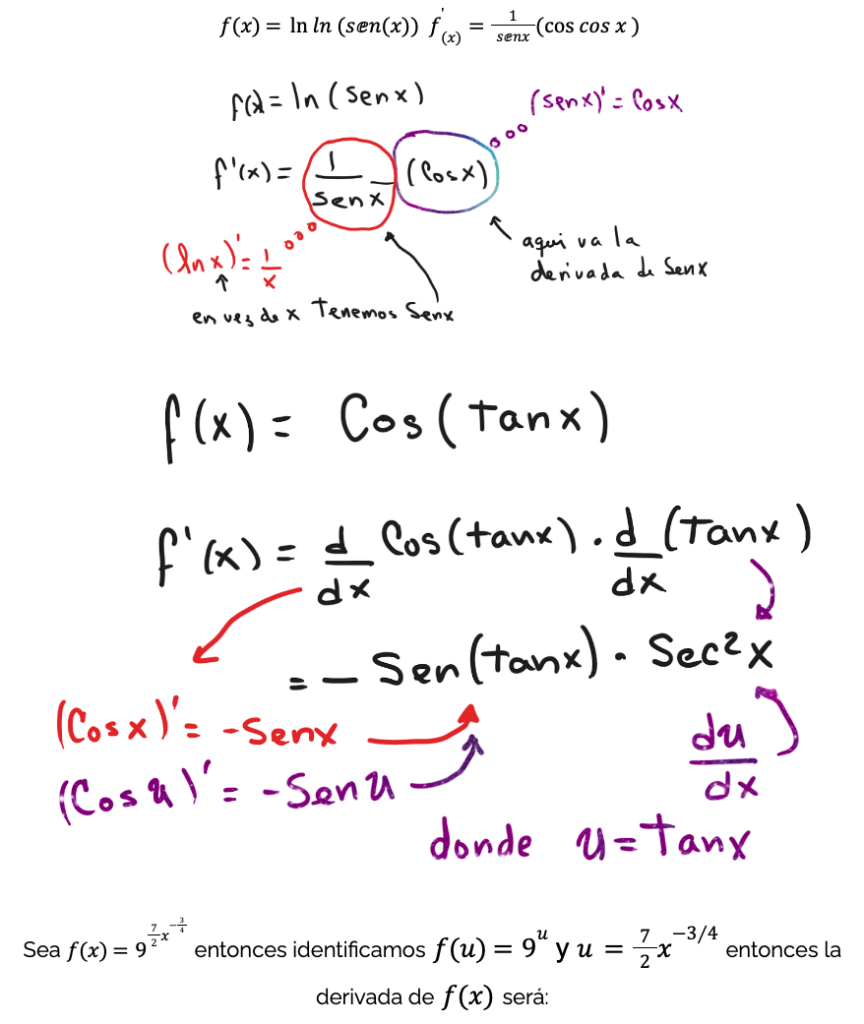 f(x) = ln ln (sen(x)) f'(x) = 1/senx (cos cos x )
f(x) = ln (senx)
(senx)' = Cosx
f'(x) = 1/senx (Cosx)
(lnx)' = 1/x
aqui va la
derivada de Senx
en vez de x Tenemos Senx
f(x) = Cos(Tanx)
f'(x) = d/dx Cos(tanx) . d/dx (Tanx)
= - Sen(tanx) . Sec²x
(Cosx)' = -Senx
(Cos u)' = -Sen u
du/dx
donde u = Tanx
Sea f(x) = 9^(7/2 x^(-3/4)) entonces identificamos f(u) = 9^u y u = 7/2 x^(-3/4) entonces la
derivada de f(x) será: